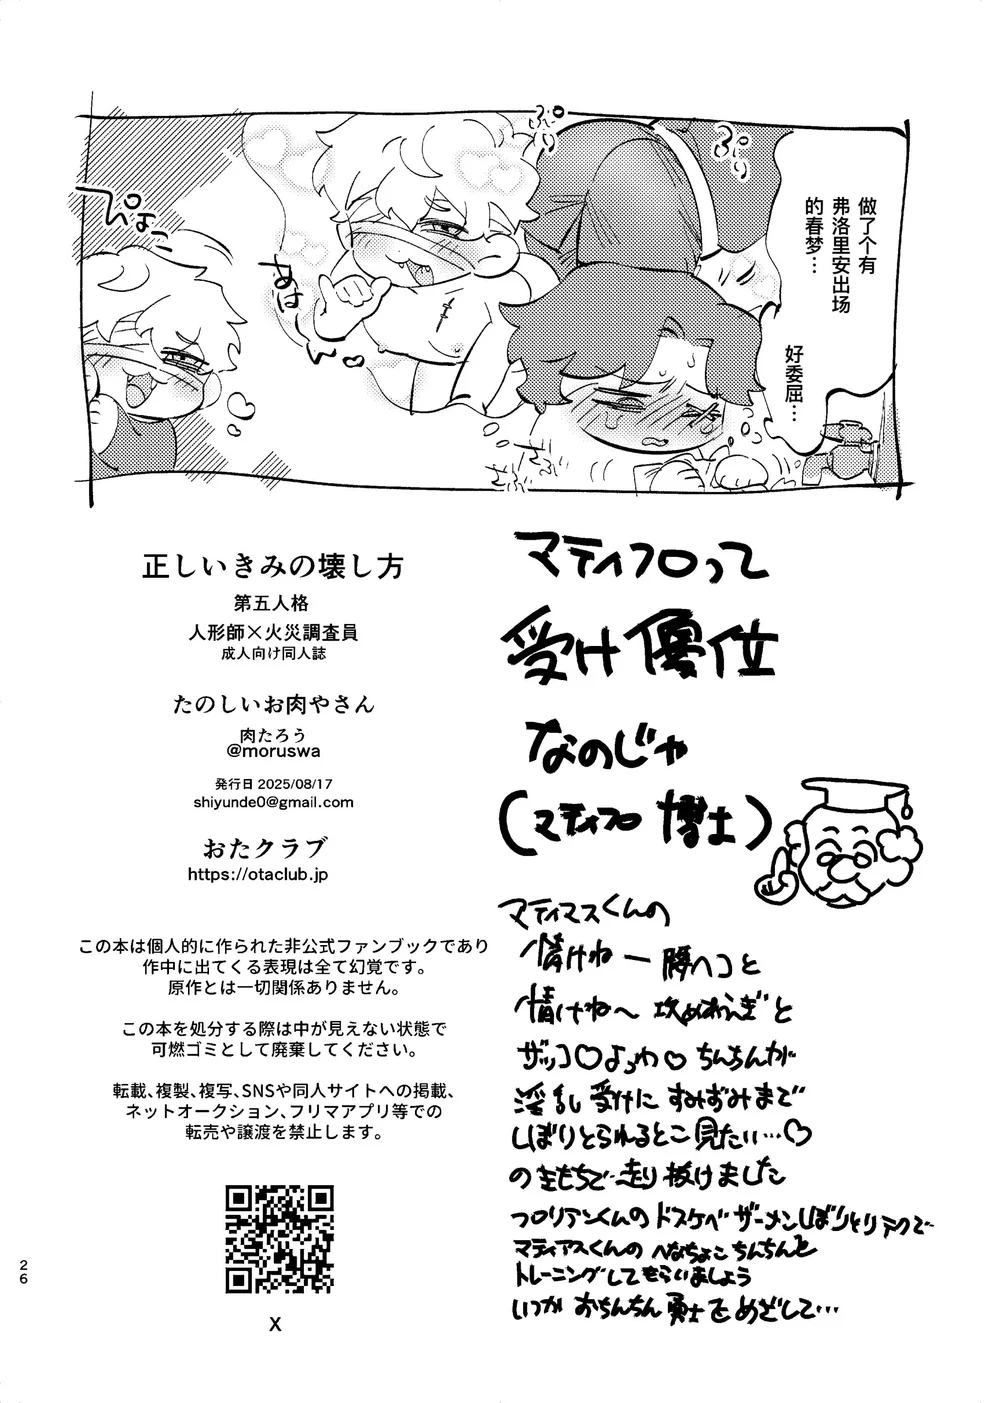 做了个有
弗洛里安出场
的春梦…
好委屈…
ぴょこっ
あは〜ん
ぷりぷり
正しいきみの壊し方
第五人格
人形師×火災調査員
成人向け同人誌
たのしいお肉やさん
肉たろう
@moruswa
発行日 2025/08/17
shiyunde0@gmail.com
おたクラブ
https://otaclub.jp
この本は個人的に作られた非公式ファンブックであり
作中に出てくる表現は全て幻覚です。
原作とは一切関係ありません。
この本を処分する際は中が見えない状態で
可燃ゴミとして廃棄してください。
転載、複製、複写、SNSや同人サイトへの掲載、
ネットオークション、フリマアプリ等での
転売や譲渡を禁止します。
X
26
マティフロって
受け優位
なのじゃ
(マティフロ博士)
マティアスくんの
情けねー腰ヘコと
情けねへ攻めあえぎと
ザッコ♡よわ♡ちんちんが
淫乱受けにすみずみまで
しぼりとられるとこ見たい…♡
のきもちで走り抜けました
フロリアンくんのドスケベザーメンしぼりとりテクで
マティアスくんのへなちょこちんちんを
トレーニングしてもらいましょう
いつかおちんちん勇士をめざして…